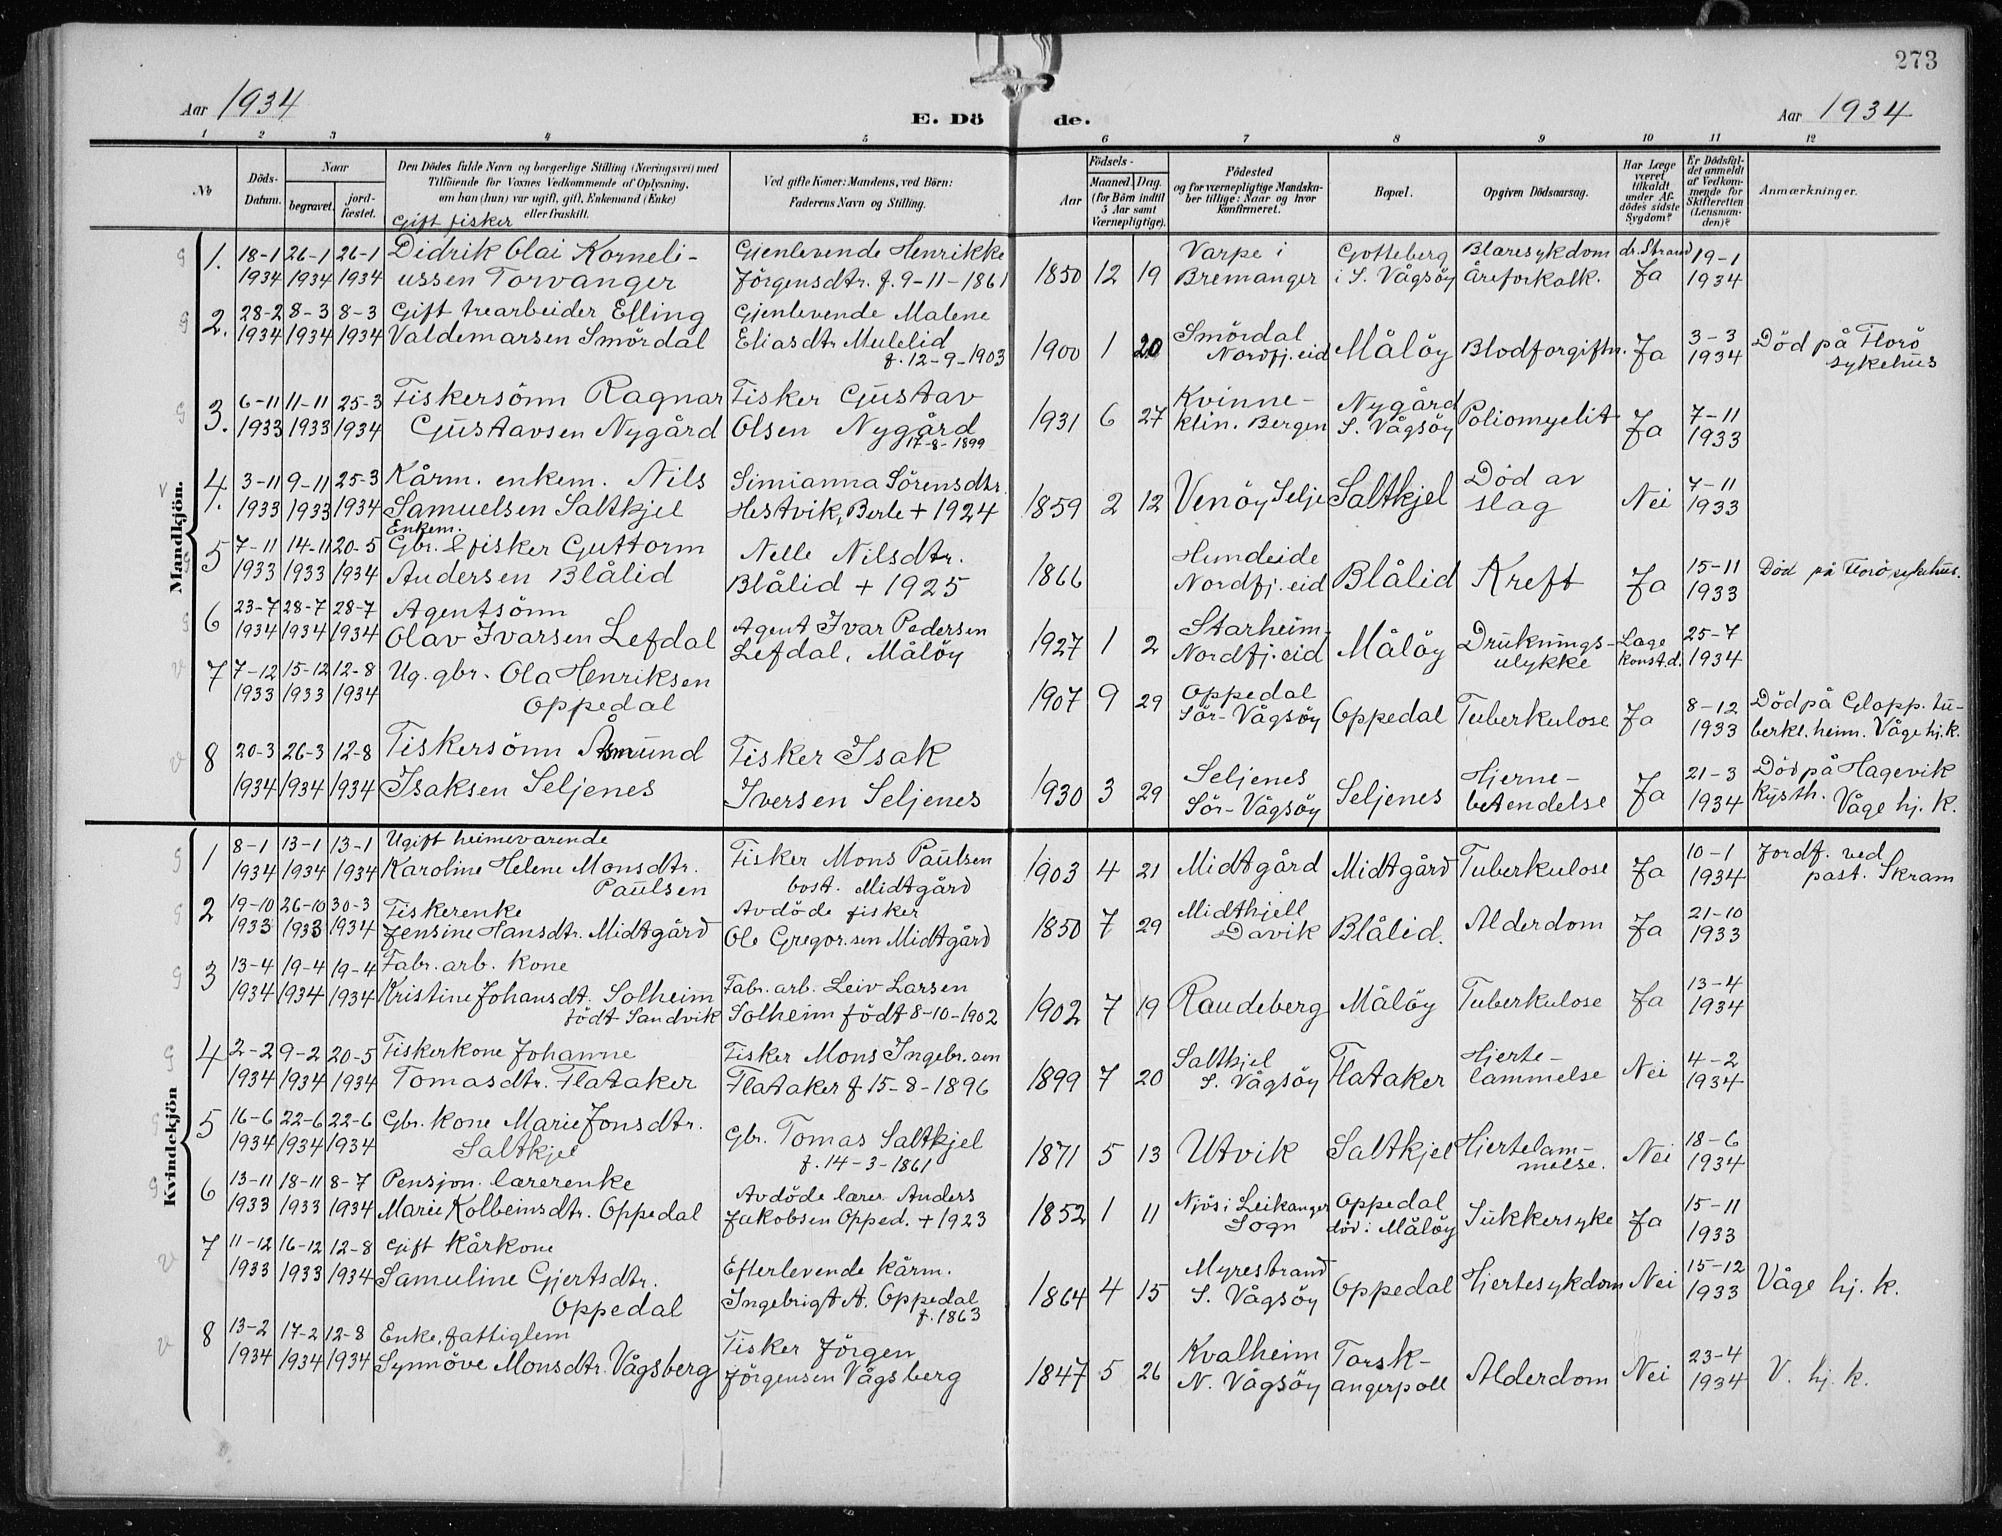 273
Aar 1934
E. Dö de.
Aar 1934
1 2 3 4 5 6 7 8 9 10 11 12
No
Döds-
Datum.
Naar
begravet.
jord-
fæstet.
Den Dödes fulde Navn og borgerlige Stilling (Næringsvei) med
Tilföiende for Voxnes Vedkommende af Oplysning,
om han (hun) var ugift, gift, Enkemand (Enke)
eller fraskilt.
Ved gifte Koner: Mandens, ved Börn:
Faderens Navn og Stilling.
Födsels-
Aar
Maaned. Dag.
(for Börn indtil
5 Aar samt
Værnepligtige).
Födested
og for værnepligtige Mandska-
ber tillige: Naar og hvor
konfirmeret.
Bopæl.
Opgiven Dödsaarsag.
Har Læge
været
tilkaldt
under Af-
dödes sidste
Sygdom?
Er Dödsfal-
det anmeldt
af Vedkom-
mende for
Skifteretten
(Lensman-
den)?
Anmærkninger.
Mandkjön.
Gift fisker
1. 18-1 26-1 26-1 Didrik Olai Korneli- Gjenlevende Henrikke Varpe i Gotteberg Blæresykdom dr. Strand 19-1
1934 1934 1934 ussen Torvanger Jörgensdtr. f. 9-11-1861 1850 12 19 Bremanger i S. Vågsöy Åreforkalk. Ja 1934
2. 28-2 8-3 8-3 Gift trearbeider Elling Gjenlevende Malene Smördal 3-3 Död på Florö
1934 1934 1934 Valdemarsen Smördal Eliasdtr. Mulelid 1900 1 20 Nordfj.eid Målöy Blodforgiftn. Ja 1934 sykehus
f. 12-9-1903
3. 6-11 11-11 25-3 Fiskersönn Ragnar Fisker Gustav Kvinne- Nygård 7-11
1933 1933 1934 Gustavsen Nygård Olsen Nygård 1931 6 27 klin. Bergen S. Vågsöy Poliomyelit Ja 1933
17-8-1899
4. 3-11 9-11 25-3 Kårm. enkem. Nils Simianna Sörensdtr. Död av 7-11
1933 1933 1934 Samuelsen Saltkjel Hestvik, Berle + 1924 1859 2 12 Venöy Selje Saltkjel slag Nei 1933
Enkem.
5 7-11 14-11 20-5 Gbr. & fisker Guttorm Nelle Nilsdtr. Hundeide 15-11 Död på Florö sykehus.
1933 1933 1934 Andersen Blålid Blålid + 1925 1866 Nordfj.eid Blålid Kreft Ja 1933
6 23-7 28-7 28-7 Agentsönn Agent Ivar Pedersen Starheim Druknings- Lage 25-7
1934 1934 1934 Olav Ivarsen Lefdal Lefdal, Målöy 1927 1 2 Nordfj.eid Målöy ulykke konst.d. 1934
7 7-12 15-12 12-8 Ug. gbr. Ola Henriksen Oppedal 8-12 Död på Glopp. tu-
1933 1933 1934 Oppedal 1907 9 29 Sör-Vågsöy Oppedal Tuberkulose Ja 1933 berkl. heim. Våge hj.k.
8 20-3 26-3 12-8 Fiskersönn Åsmund Fisker Isak Seljenes Hjerne- 21-3 Död på Hagevik
1934 1934 1934 Isaksen Seljenes Iversen Seljenes 1930 3 29 Sör-Vågsöy Seljenes betendelse Ja 1934 Kysth. Våge hj. k.
Kvindekjön
1 8-1 13-1 13-1 Ugift heimeværende Fisker Mons Paulsen 10-1 Jordf. ved
1934 1934 1934 Karoline Helene Monsdtr. bost. Midtgård 1903 4 21 Midtgård Midtgård Tuberkulose Ja 1934 past. Skram
Paulsen
2 19-10 26-10 30-3 Fiskerenke Avdöde fisker Midthjell 21-10
1933 1933 1934 Jensine Hansdtr. Midtgård Ole Gregor.sen Midtgård 1850 7 29 Davik Blålid. Alderdom Ja 1933
3 13-4 19-4 19-4 Fabr. arb. kone Fabr. arb. Leiv Larsen 13-4
1934 1934 1934 Kristine Johansdt. Solheim Solheim födt 8-10-1902 1902 7 19 Raudeberg Målöy Tuberkulose Ja 1934
födt Sandvik
4 2-2 9-2 20-5 Fiskerkone Johanne Fisker Mons Ingebr.sen Saltkjel Hjerte- 4-2
1934 1934 1934 Tomasdtr. Flataker Flataker f 15-8-1896 1899 7 20 S. Vågsöy Flataker lammelse Nei 1934
5 16-6 22-6 22-6 Gbr. kone Marie Jonsdtr. Gbr. Tomas Saltkjel Hjertelam- 18-6
1934 1934 1934 Saltkjel f. 14-3-1861 1871 5 13 Utvik Saltkjel melse. Nei 1934
6 13-11 18-11 8-7 Pensjon. lærerenke Avdöde lærer Anders Njös i Leikanger Oppedal 15-11
1933 1933 1934 Marie Kolbeinsdtr. Oppedal Jakobsen Opped. + 1923 1852 1 11 Sogn död i Målöy Sukkersyke Ja 1933
7 11-12 16-12 12-8 Gift kårkone Efterlevende kårm. Myrestrand 15-12
1933 1933 1934 Samuline Gjertsdtr. Ingebrigt A. Oppedal 1864 4 15 S. Vågsöy Oppedal Hjertesykdom Nei 1933 Våge hj. k.
Oppedal f. 1863
8 13-2 17-2 12-8 Enke, fattiglem Fisker Jörgen Kvalheim Torsk- 23-4
1934 1934 1934 Synnöve Monsdtr. Vågsberg Jörgensen Vågsberg 1847 5 26 N. Vågsöy angerpoll Alderdom Nei 1934 V. hj. k.